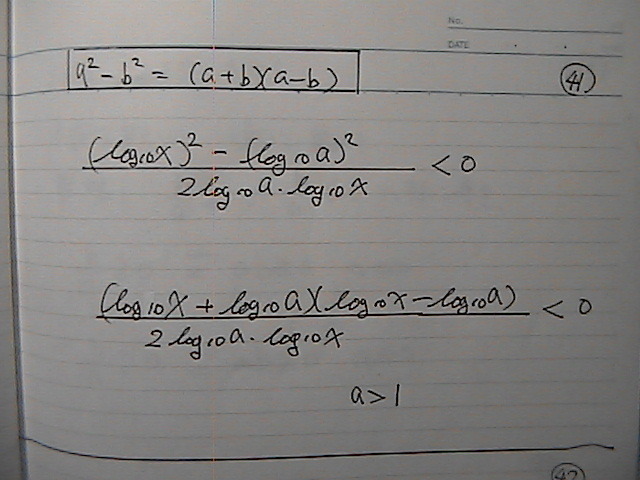 No.
DATE
a² - b² = (a+b)(a-b)
41
(log₁₀x)² - (log₁₀a)² / 2log₁₀a · log₁₀x < 0
(log₁₀x + log₁₀a)(log₁₀x - log₁₀a) / 2log₁₀a · log₁₀x < 0
a > 1